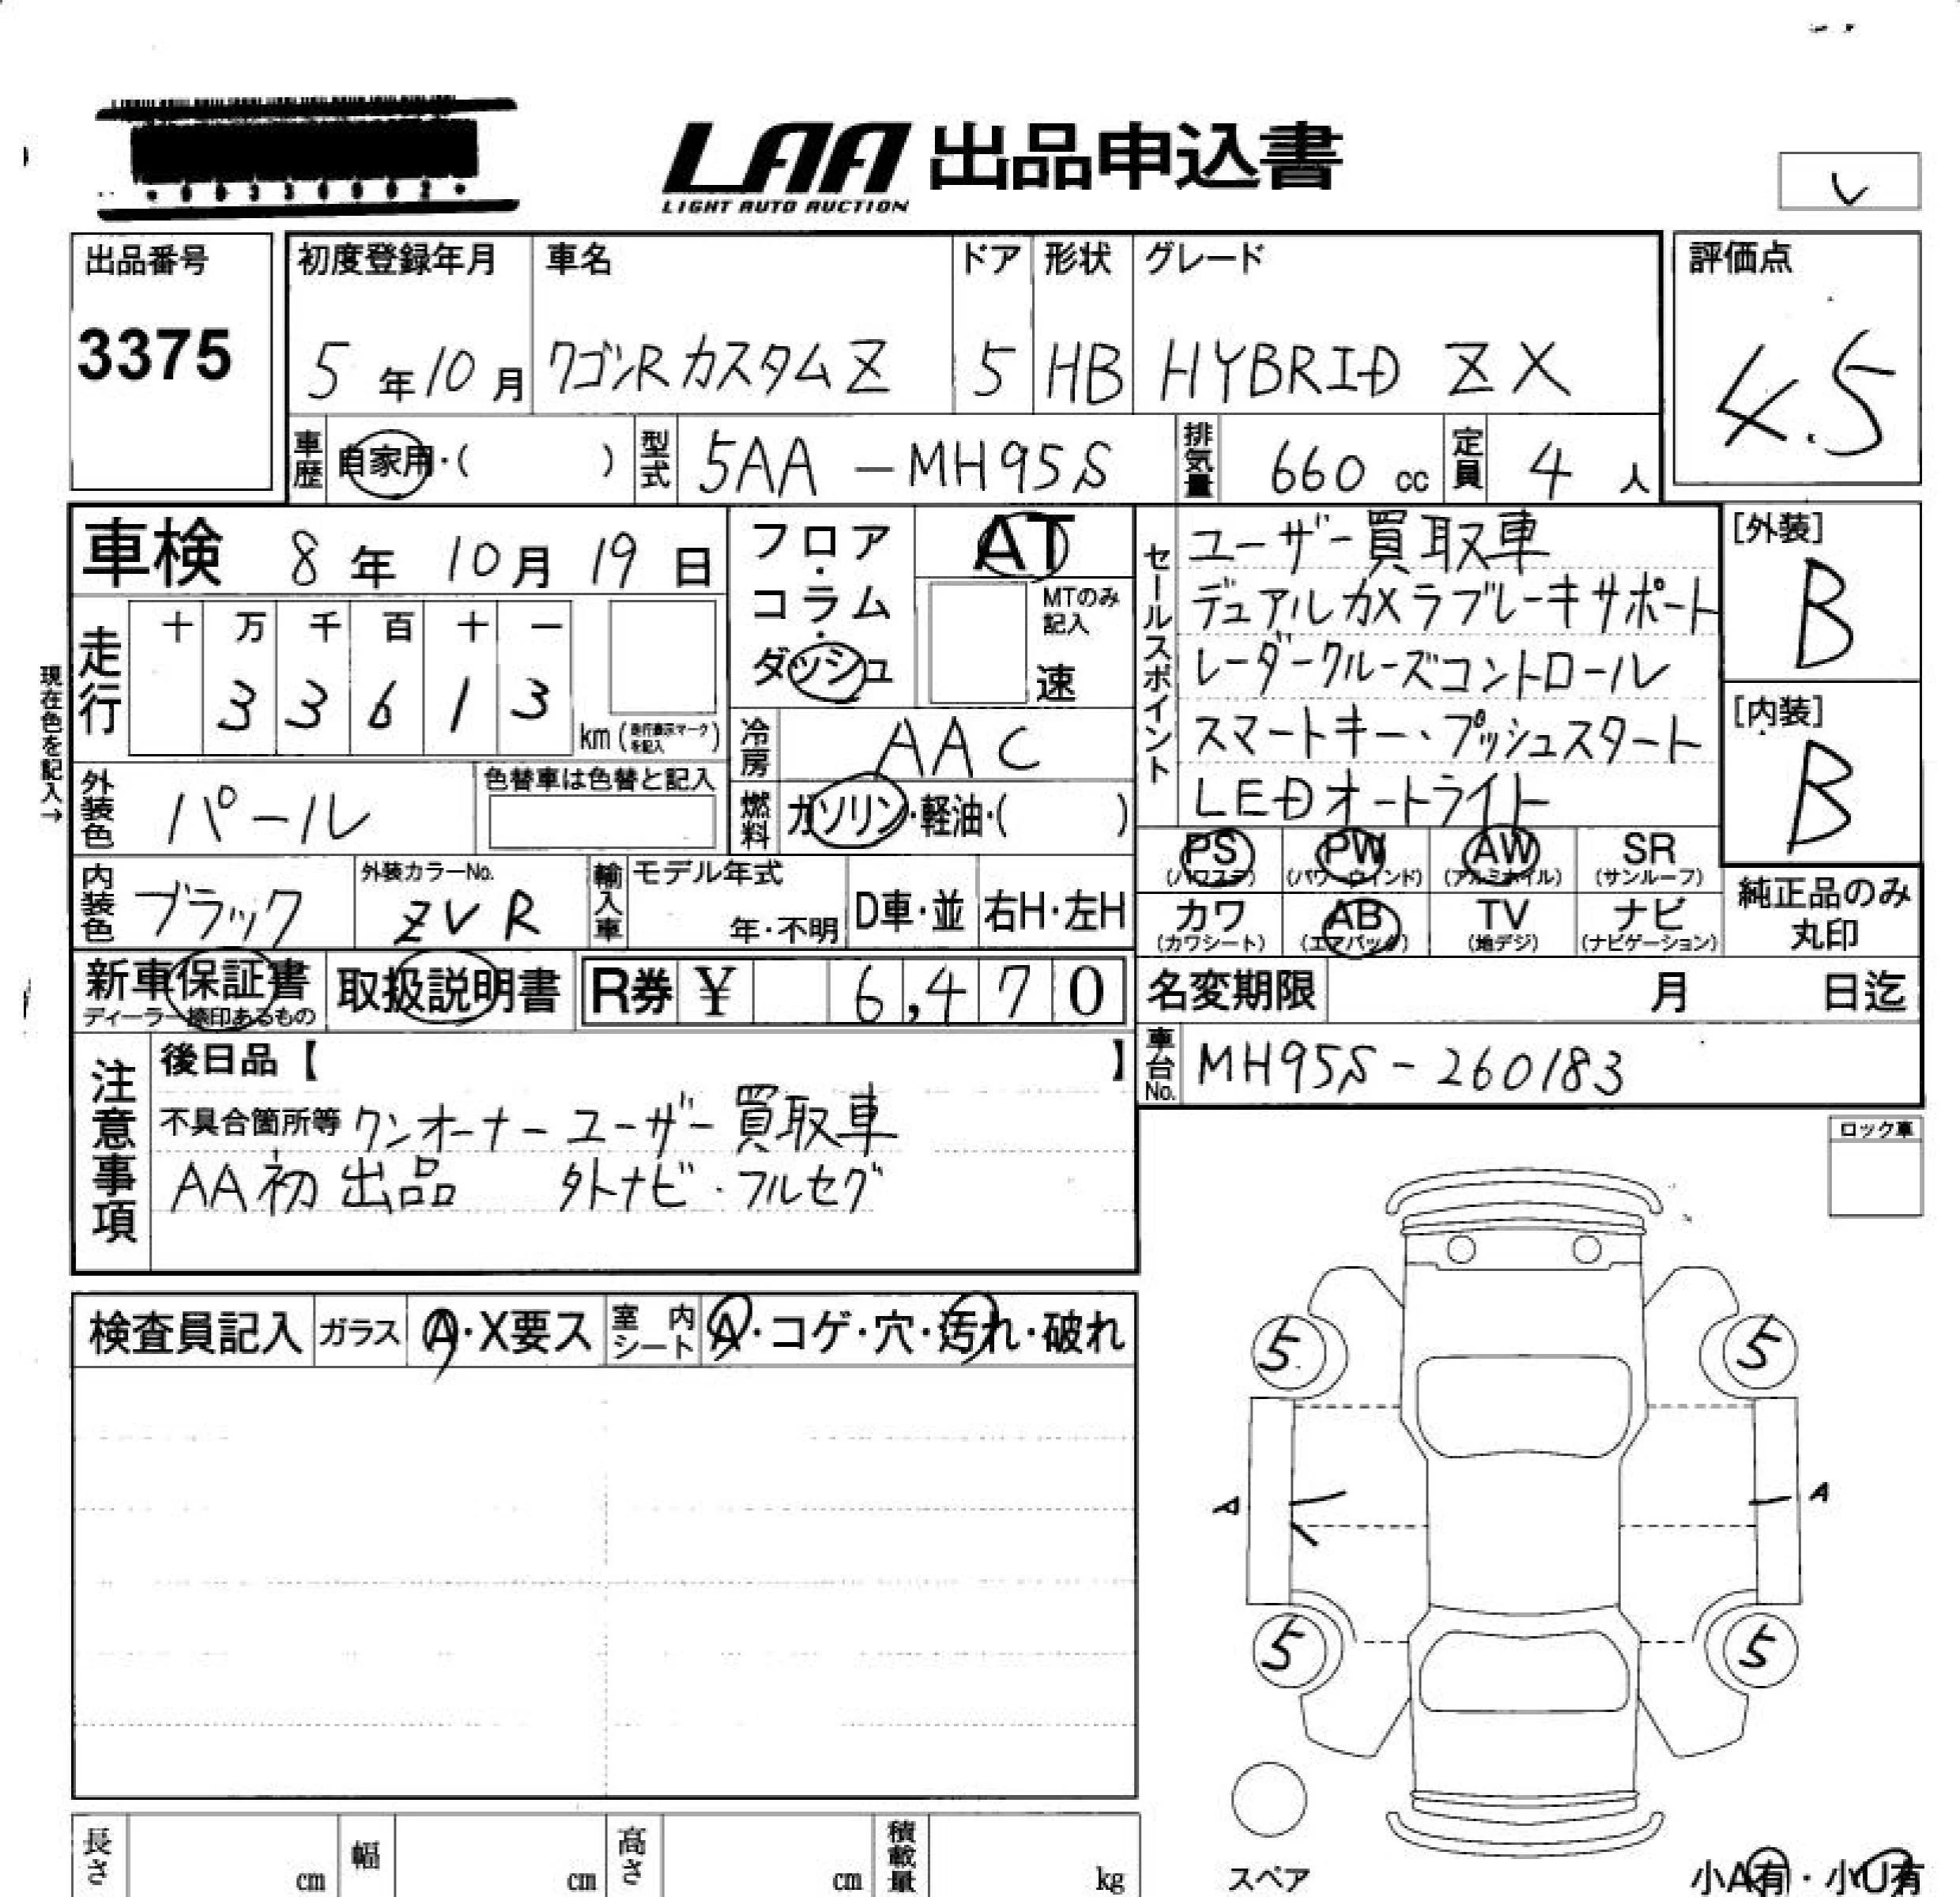 LAA 出品申込書
LIGHT AUTO AUCTION
出品番号
3375
初度登録年月
5年10月
車名
ワゴンRカスタムZ
ドア
5
形状
HB
グレード
HYBRID ZX
評価点
4.5
車歴 自家用・( )
型式 5AA-MH95S
排気量 660 cc
定員 4 人
車検 8年10月19日
フロア・コラム・ダッシュ
AT
MTのみ記入
速
現在色を記入→
走行
十 万 千 百 十 一
3 3 6 1 3
km (走行表示マークを記入)
冷房 AAC
外装色 パール
色替車は色替と記入
燃料 ガソリン・軽油・( )
内装色 ブラック
外装カラーNo.
ZVR
輸入車
モデル年式
年・不明
D車・並
右H・左H
新車保証書
ディーラー捺印あるもの
取扱説明書
R券 ¥ 6,470
セールスポイント
ユーザー買取車
デュアルカメラブレーキサポート
レーダークルーズコントロール
スマートキー、プッシュスタート
LEDオートライト
[外装]
B
[内装]
B
PS PW AW SR
(パワステ) (パワーウィンド) (アルミホイル) (サンルーフ)
カワ AB TV ナビ
(カワシート) (エアバッグ) (地デジ) (ナビゲーション)
純正品のみ
丸印
名変期限 月 日迄
車台No. MH95S-260183
注意事項
後日品【 】
不具合箇所等 ワンオーナー ユーザー買取車
AA初出品 外ナビ・フルセグ
ロック車
検査員記入
ガラス A・X要ス
室内シート A・コゲ・穴・汚れ・破れ
5 5
A A
5 5
スペア
長さ cm
幅 cm
高さ cm
積載量 kg
小A有・小U有